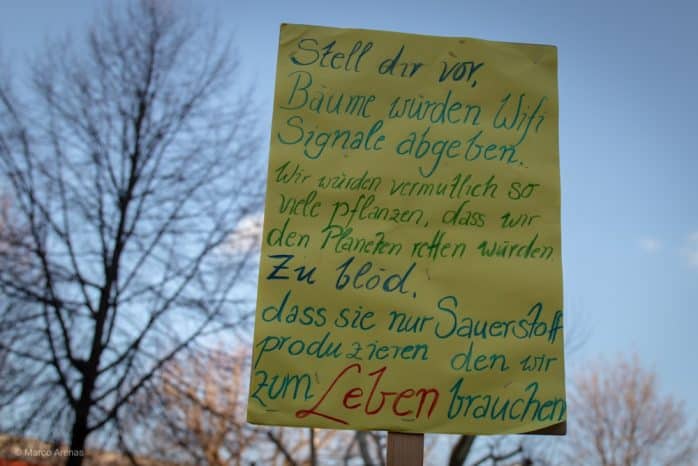 Stell dir vor,
Bäume würden Wifi
Signale abgeben.
Wir würden vermutlich so
viele pflanzen, dass wir
den Planeten retten würden
Zu blöd,
dass sie nur Sauerstoff
produzieren den wir
zum Leben brauchen
© Marco Arenas